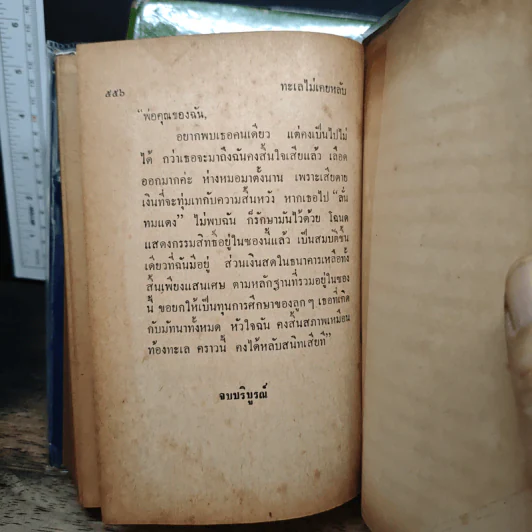 ๕๕๖
ทะเลไม่เคยหลับ
“พ่อคุณของฉัน,
อยากพบเธอคนเดียว แต่คงเป็นไปไม่
ได้ กว่าเธอจะมาถึงฉันคงสิ้นใจเสียแล้ว เลือด
ออกมากค่ะ ห่างหมอมาตั้งนาน เพราะเสียดาย
เงินที่จะทุ่มเทกับความสิ้นหวัง หากเธอไป “ลั่น
ทมแดง” ไม่พบฉัน ก็รักษามันไว้ด้วย โฉนด
แสดงกรรมสิทธิ์อยู่ในซองนี้แล้ว เป็นสมบัติชิ้น
เดียวที่ฉันมีอยู่ ส่วนเงินสดในธนาคารเหลือทั้ง
สิ้นเพียงแสนเศษ ตามหลักฐานที่รวมอยู่ในซอง
นี้ ขอยกให้เป็นทุนการศึกษาของลูกๆ เธอที่เกิด
กับมัทนาทั้งหมด หัวใจฉัน คงสิ้นสภาพเหมือน
ท้องทะเล คราวนี้ คงได้หลับสนิทเสียที”
จบบริบูรณ์